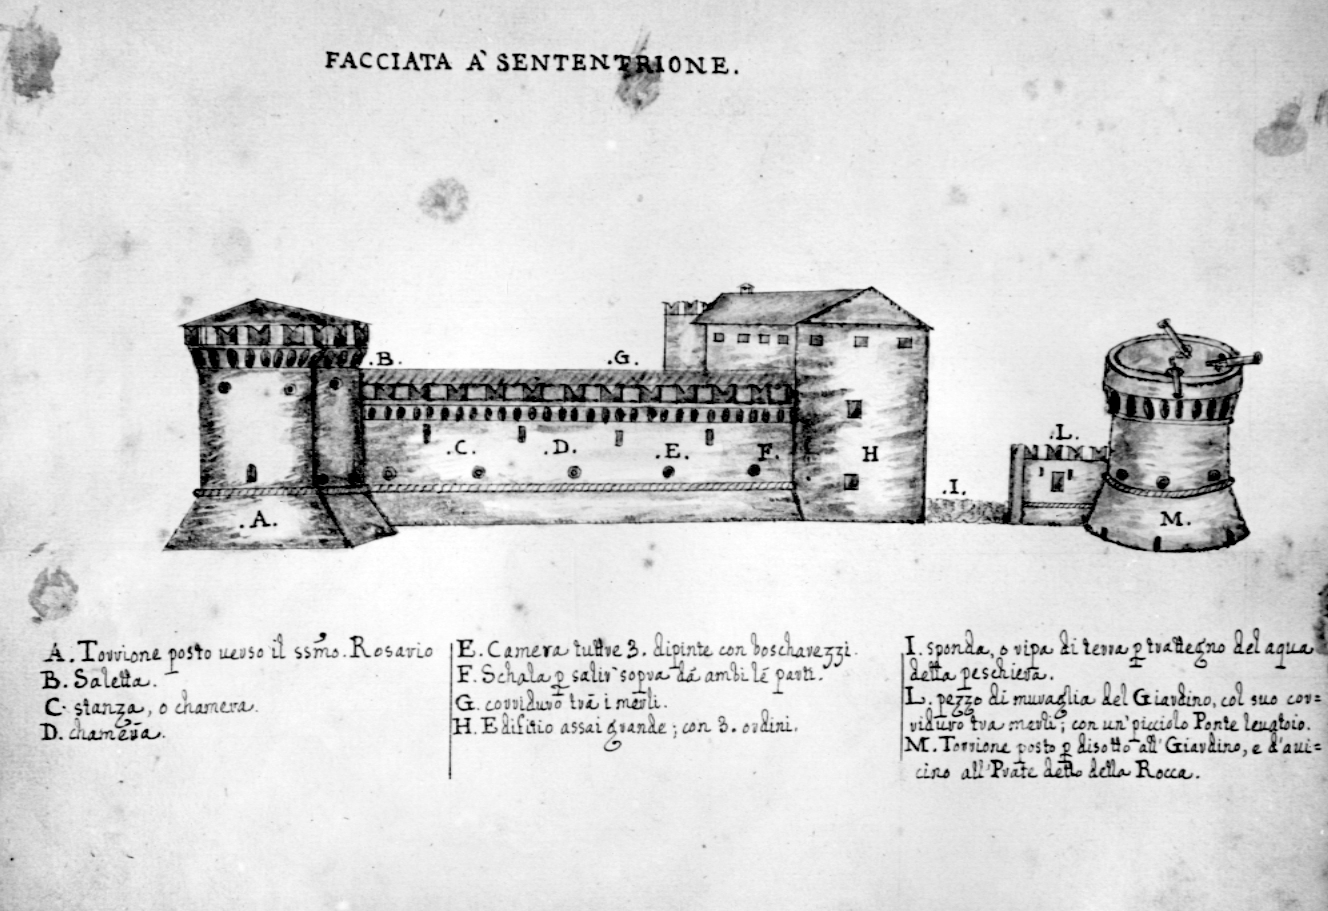 FACCIATA A' SENTENTRIONE.
.B.
.G.
.L.
.C.
.D.
.E.
F.
H
.I.
.A.
M.
A. Torrione posto verso il ssmo. Rosario
B. Saletta.
C. stanza, o chamera.
D. chamera.
E. Camera tuttve 3. dipinte con boscharezzi.
F. Schala p salir' sopra dá ambi lé parti.
G. corriduro trá i merli.
H. Edifitio assai grande; con 3. ordini.
I. sponda, o ripa di terra p trattegno del aqua
della peschiera.
L. pezzo di muraglia del Giardino, col suo cor=
riduro tra merli; con un' picciolo Ponte levatoio.
M. Torrione posto p disotto all' Giardino, e d'avi=
cino all' Prate detto della Rocca.